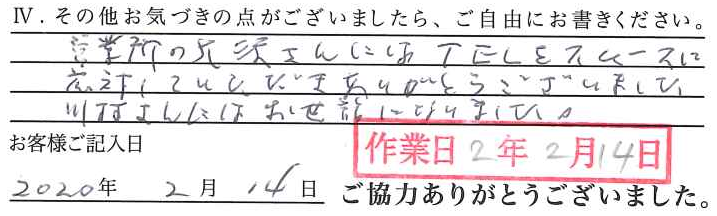 Ⅳ．その他お気づきの点がございましたら、ご自由にお書きください。
営業所の さんにはTELをスムースに
応対していただきありがとうございました
川村さんにはお世話になりました。
お客様ご記入日
作業日 2年 2月14日
2020年 2月 14日 ご協力ありがとうございました。